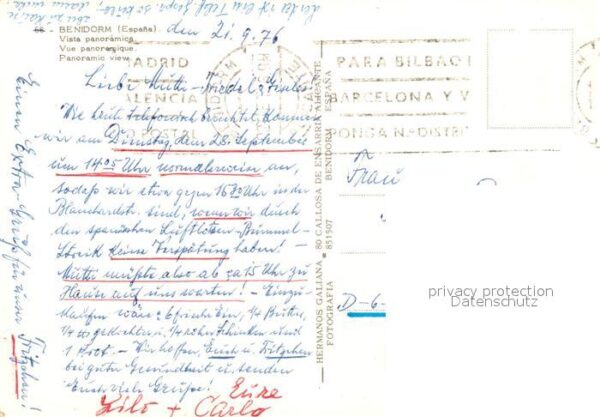 66 - BENIDORM (España)
Vista panorámica
Vue panoramique
Panoramic view
den 21.9.76
MADRID
VALENCIA
POSTAL
PARA BILBAO
BARCELONA Y V
PONGA N.º DISTRI
Liebe Mutti - Friedel, Gisela
Wie heute telefonisch kommen
wir am Dienstag, dem 28. September
um 14.05 Uhr normalerweise an,
sodaß wir etwa gegen 16.00 Uhr in der
Blanchardstr. sind, wenn wir durch
den spanischen Luftlotsen-Bummel-
Streik keine Verspätung haben! -
Mutti müßte also ab ca 15 Uhr zu
Hause auf uns warten! - Einzu-
kaufen wäre: 6 frische Eier, 1/4 Butter,
1/4 gekochten u. 1/4 rohen Schinken und
1 Brot. - Wir hoffen, Euch u. Fritzchen
bei guter Gesundheit u. senden
Euch viele Grüße!
Eure
Lilo + Carlo
Einen Extra-Gruß für unser Fritzchen!
HERMANOS GALIANA * 80 CALLOSA DE ENSARRIA ALICANTE
851507 BENIDORM ESPAÑA
Frau
D-6-
privacy protection
Datenschutz